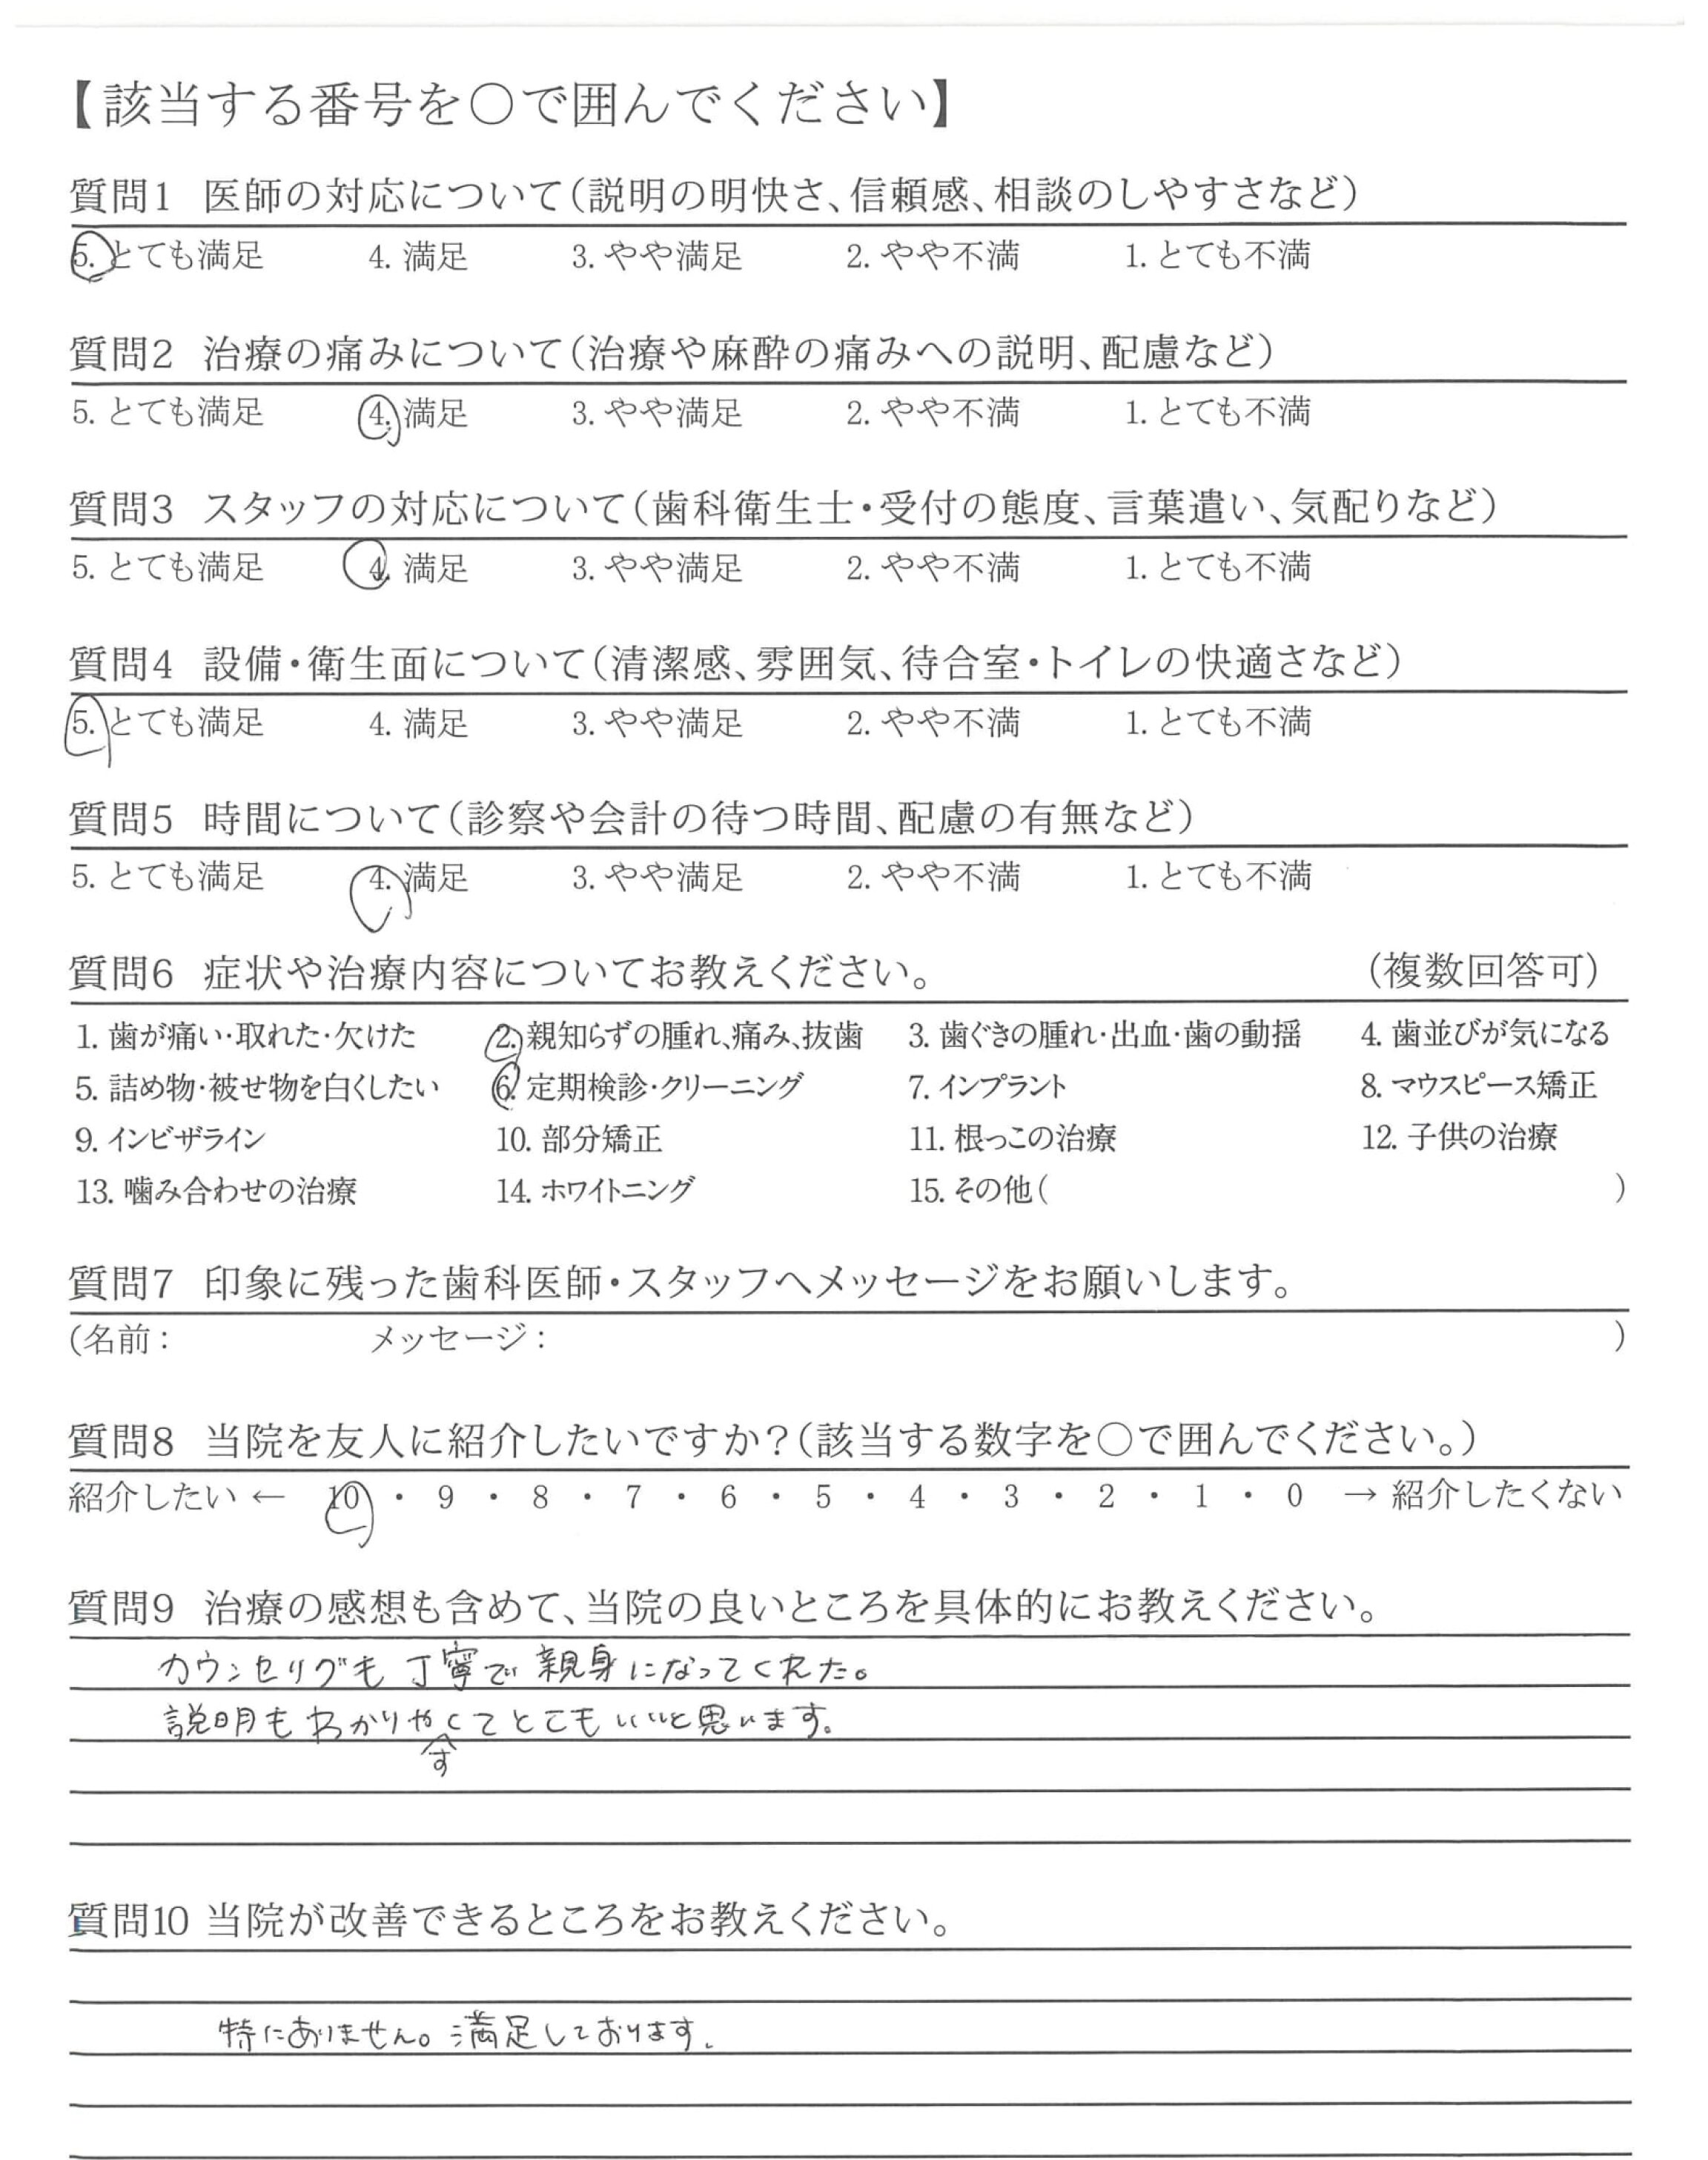 【該当する番号を〇で囲んでください】
質問1 医師の対応について(説明の明快さ、信頼感、相談のしやすさなど)
5. とても満足 4. 満足 3. やや満足 2. やや不満 1. とても不満
質問2 治療の痛みについて(治療や麻酔の痛みへの説明、配慮など)
5. とても満足 4. 満足 3. やや満足 2. やや不満 1. とても不満
質問3 スタッフの対応について(歯科衛生士・受付の態度、言葉遣い、気配りなど)
5. とても満足 4. 満足 3. やや満足 2. やや不満 1. とても不満
質問4 設備・衛生面について(清潔感、雰囲気、待合室・トイレの快適さなど)
5. とても満足 4. 満足 3. やや満足 2. やや不満 1. とても不満
質問5 時間について(診察や会計の待つ時間、配慮の有無など)
5. とても満足 4. 満足 3. やや満足 2. やや不満 1. とても不満
質問6 症状や治療内容についてお教えください。 (複数回答可)
1. 歯が痛い・取れた・欠けた 2. 親知らずの腫れ、痛み、抜歯 3. 歯ぐきの腫れ・出血・歯の動揺 4. 歯並びが気になる
5. 詰め物・被せ物を白くしたい 6. 定期検診・クリーニング 7. インプラント 8. マウスピース矯正
9. インビザライン 10. 部分矯正 11. 根っこの治療 12. 子供の治療
13. 噛み合わせの治療 14. ホワイトニング 15. その他( )
質問7 印象に残った歯科医師・スタッフへメッセージをお願いします。
(名前: メッセージ: )
質問8 当院を友人に紹介したいですか?(該当する数字を〇で囲んでください。)
紹介したい ← 10 ・ 9 ・ 8 ・ 7 ・ 6 ・ 5 ・ 4 ・ 3 ・ 2 ・ 1 ・ 0 → 紹介したくない
質問9 治療の感想も含めて、当院の良いところを具体的にお教えください。
カウンセリグも丁寧で親身になってくれた。
説明もわかりやすくてとてもいいと思います。
質問10 当院が改善できるところをお教えください。
特にありません。満足しております。